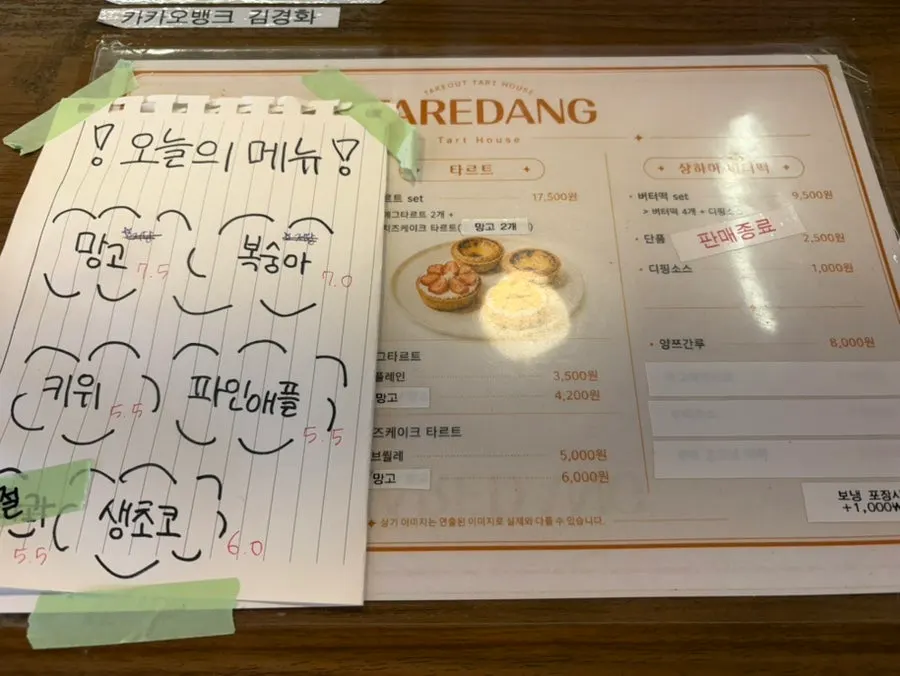 카카오뱅크 김경화
오늘의 메뉴
망고 7.5
복숭아 7.0
키위 5.5
파인애플 5.5
5.5
생초코 6.0
TAKEOUT TART HOUSE
AREDANG
Tart House
타르트
set 17,500원
에그타르트 2개 +
치즈케이크 타르트( 망고 2개 )
그타르트
플레인 3,500원
망고 4,200원
즈케이크 타르트
브륄레 5,000원
망고 6,000원
설기 이미지는 연출된 이미지로 실제와 다를 수 있습니다.
상하이 버터떡
버터떡 set 9,500원
> 버터떡 4개 + 디핑소스
단품 2,500원
판매종료
디핑소스 1,000원
양쯔간루 8,000원
보냉 포장시
+1,000₩